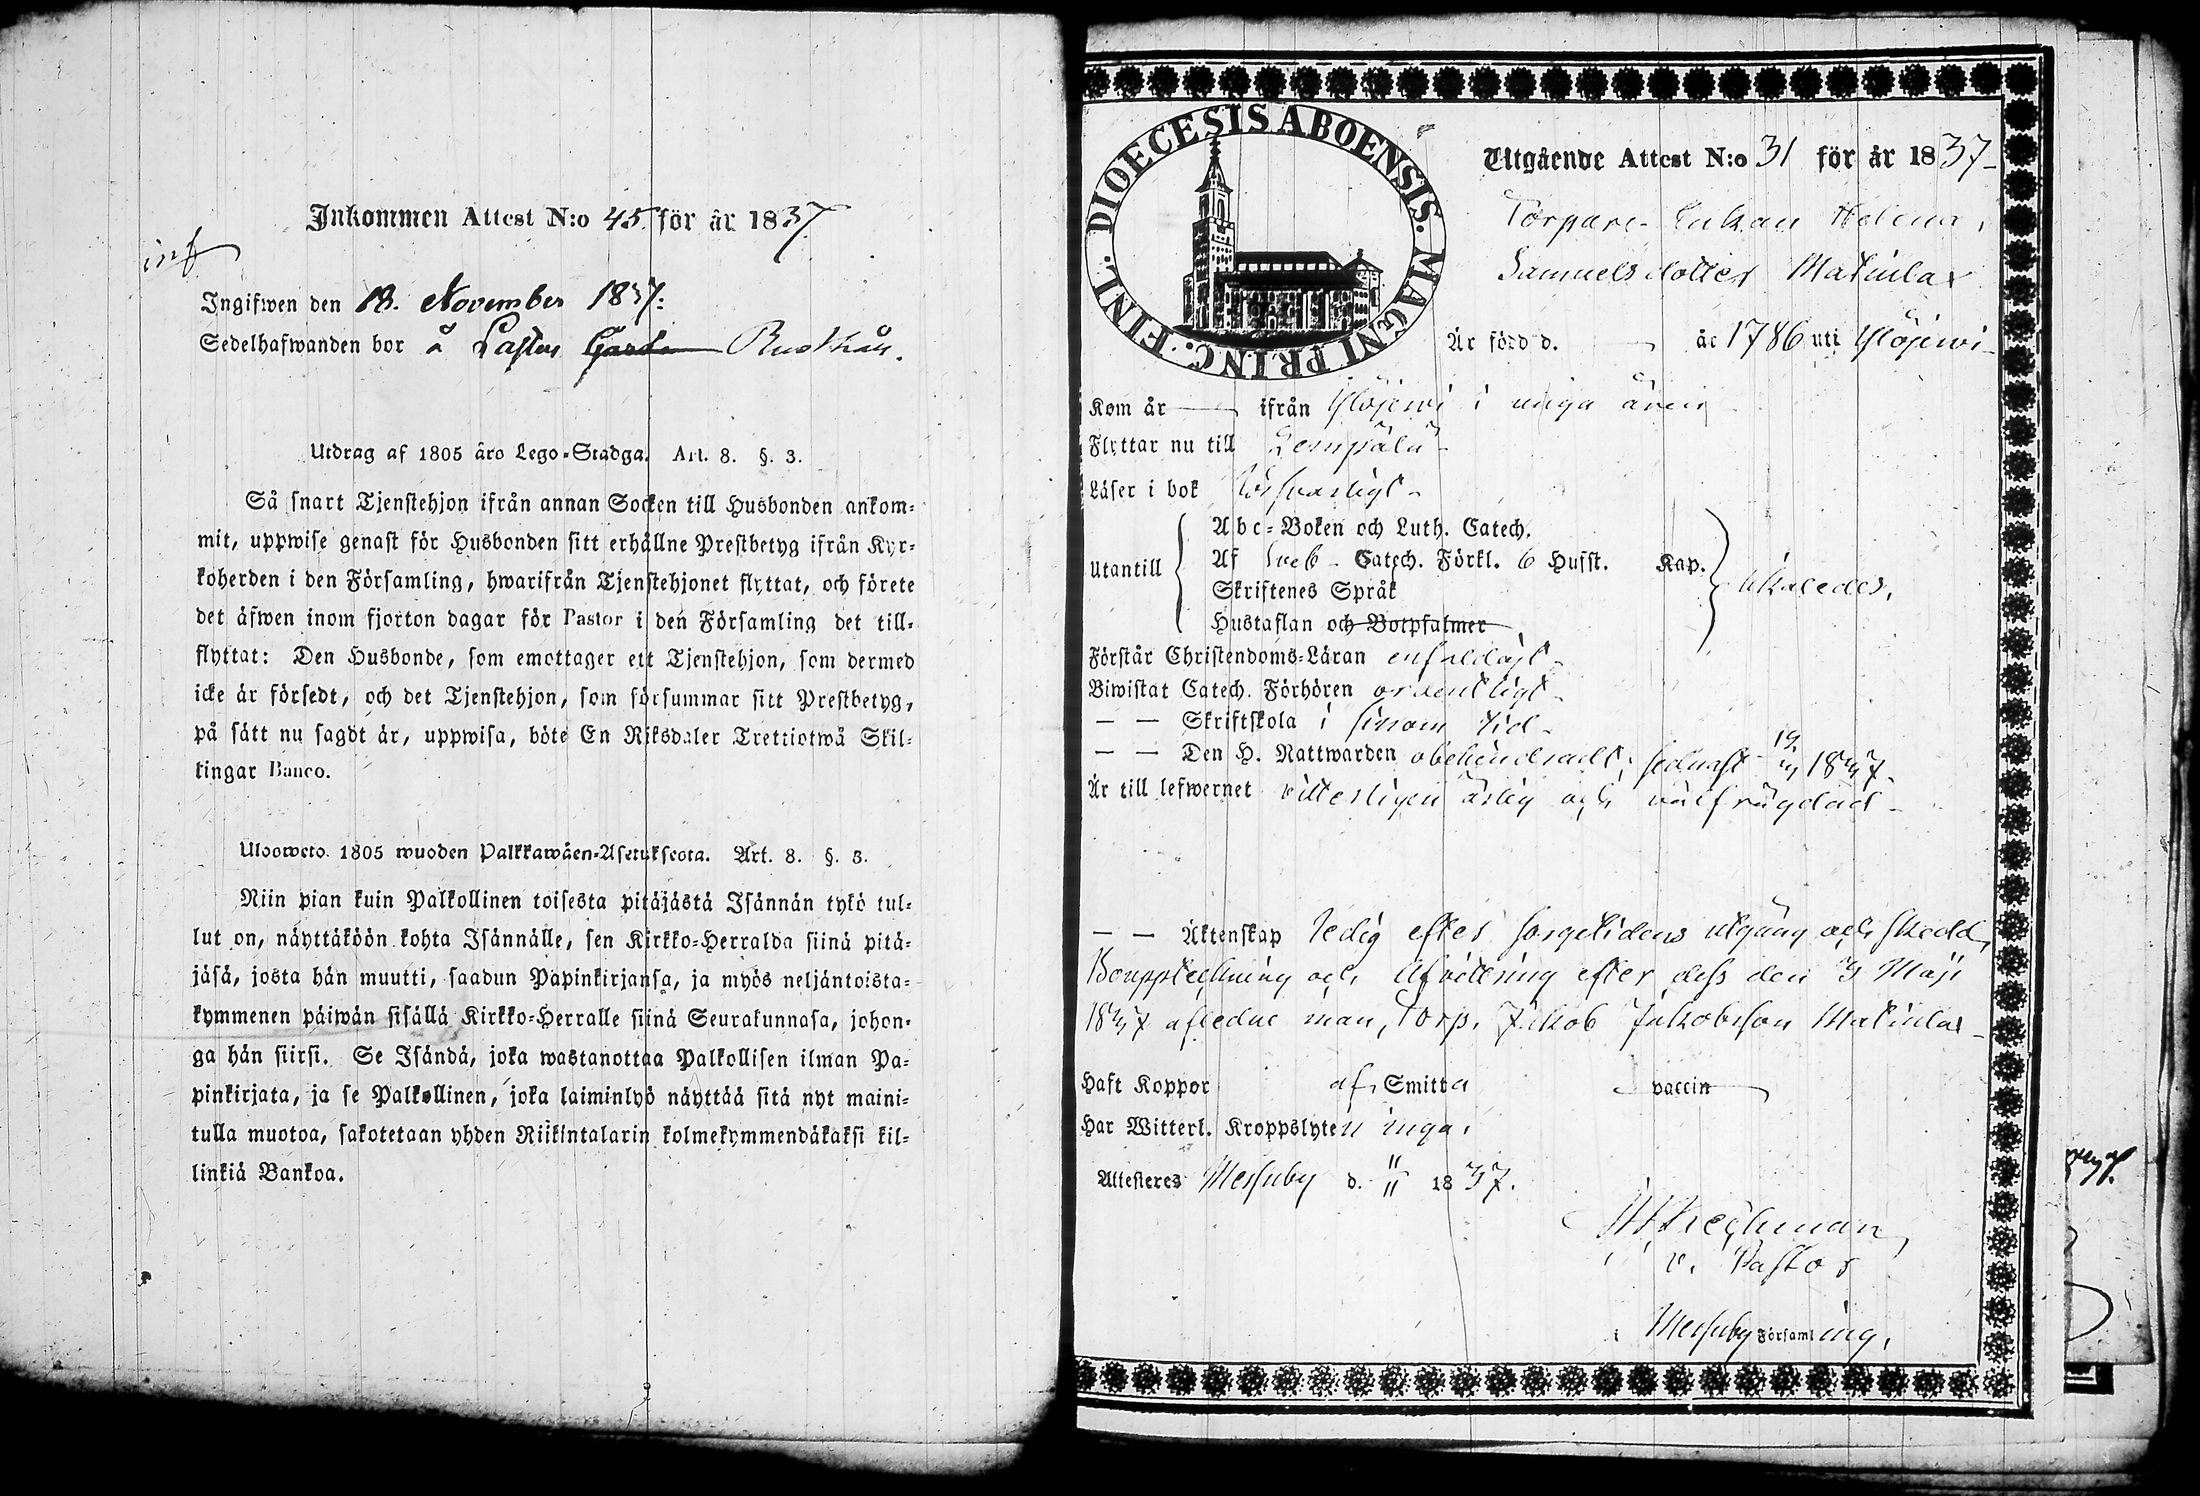 Inkommen Attest N:o 45 för år 1837.
inf
Ingifwen den 18. November 1837:
Sedelhafwanden bor å Lastus Rusthåll.
Utdrag af 1805 års Lego-Stadga. Art. 8. §. 3.
Så snart Tjenstehjon ifrån annan Socken till Husbonden ankom-
mit, uppwise genast för Husbonden sitt erhållne Prestbetyg ifrån Kyr-
koherden i den Församling, hwarifrån Tjenstehjonet flyttat, och förete
det äfwen inom fjorton dagar för Pastor i den Församling det till-
flyttat: Den Husbonde, som emottager ett Tjenstehjon, som dermed
icke är försedt, och det Tjenstehjon, som försummar sitt Prestbetyg,
på sätt nu sagdt är, uppwisa, böte En Riksdaler Trettiotwå Skil-
lingar Banco.
Ulosweto 1805 wuoden Palkkawäen-Asetuksesta. Art. 8. §. 3.
Niin pian kuin Palkollinen toisesta pitäjästä Isännän tykö tul-
lut on, näyttäköön kohta Isännälle, sen Kirkko-Herralda siinä pitä-
jäsä, josta hän muutti, saadun Papinkirjansa, ja myös neljäntoista-
kymmenen päiwän sisällä Kirkko-Herralle siinä Seurakunnasa, johon-
ga hän siirsi. Se Isändä, joka wastanottaa Palkollisen ilman Pa-
pinkirjata, ja se Palkollinen, joka laiminlyö näyttää sitä nyt maini-
tulla muotoa, sakotetaan yhden Riikintalarin kolmekymmendäkaksi kil-
linkiä Bankoa.
DIOECESIS ABOENSIS. MAGNI PRINC. FINL.
Utgående Attest N:o 31 för år 1837
Torpare-Enkan Helena
Samuelsdotter Matinlas
Är född d. år 1786 uti Ylöjerwi
Kom år ifrån Ylöjerwi i unga åren
Flyttar nu till Lempälä
Läser i bok försvarligt
Utantill
Abc-Boken och Luth. Catech.
Af Sveb. Catech. Förkl. 6 Hufst. Kap.
Skriftenes Språk
Hustaflan och Botpsalmer
likaledes.
Förstår Christendoms-Läran enfaldigt
Biwistat Catech. Förhören ordentligt
— — Skriftskola i sinom tid
— — Den H. Nattwarden obehindradt, sednast 19 1837
Är till lefwernet witterligen ärlig och wälfrägdad
— — Äktenskap ledig efter sorgetidens utgång och skedd
Bouppteckning och Afvittring efter dess den Maji
1837 afledne man, Torp. Jakob Jakobsson Matinlas
Haft Koppor af Smitta vaccin
Har Witterl. Kroppslyten inga.
Attesteres Messuby d. 11/11 1837.
v. Pastor
i Messuby Församling.